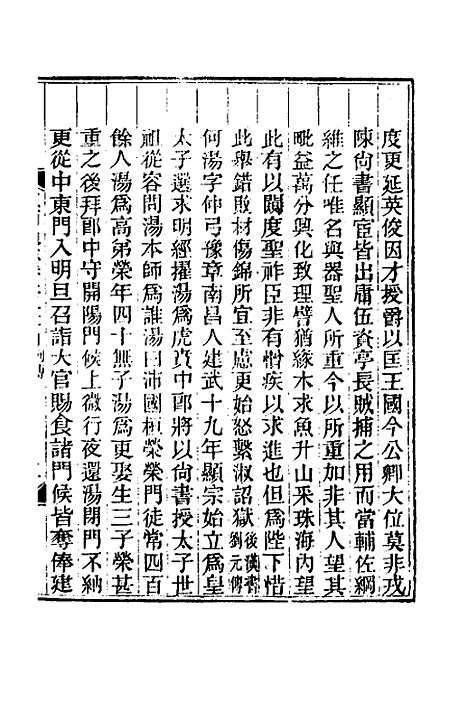 度更延英俊因才授爵以匡王國今公卿大位莫非戎
陳尚書顯宦皆出庸伍資亭長賊捕之用而當輔佐綱
維之任唯名與器聖人所重今以所重加非其人望其
毗益萬分興化致理譬猶緣木求魚升山采珠海內望
此有以闚度聖祚臣非有憎疾以求進也但為陛下惜
此舉錯敗材傷錦所宜至慮更始怒繫淑詔獄後漢書劉元傳
何湯字仲弓豫章南昌人建武十九年顯宗始立為皇
太子選求明經擢湯為虎賁中郎將以尚書授太子世
祖從容問湯本師為誰湯曰沛國桓榮榮門徒常四百
餘人湯為高弟榮年四十無子湯為更娶生三子榮甚
重之後拜郎中守開陽門候上微行夜還湯閉門不納
更從中東門入明旦召詣大官賜食諸門候皆奪俸建